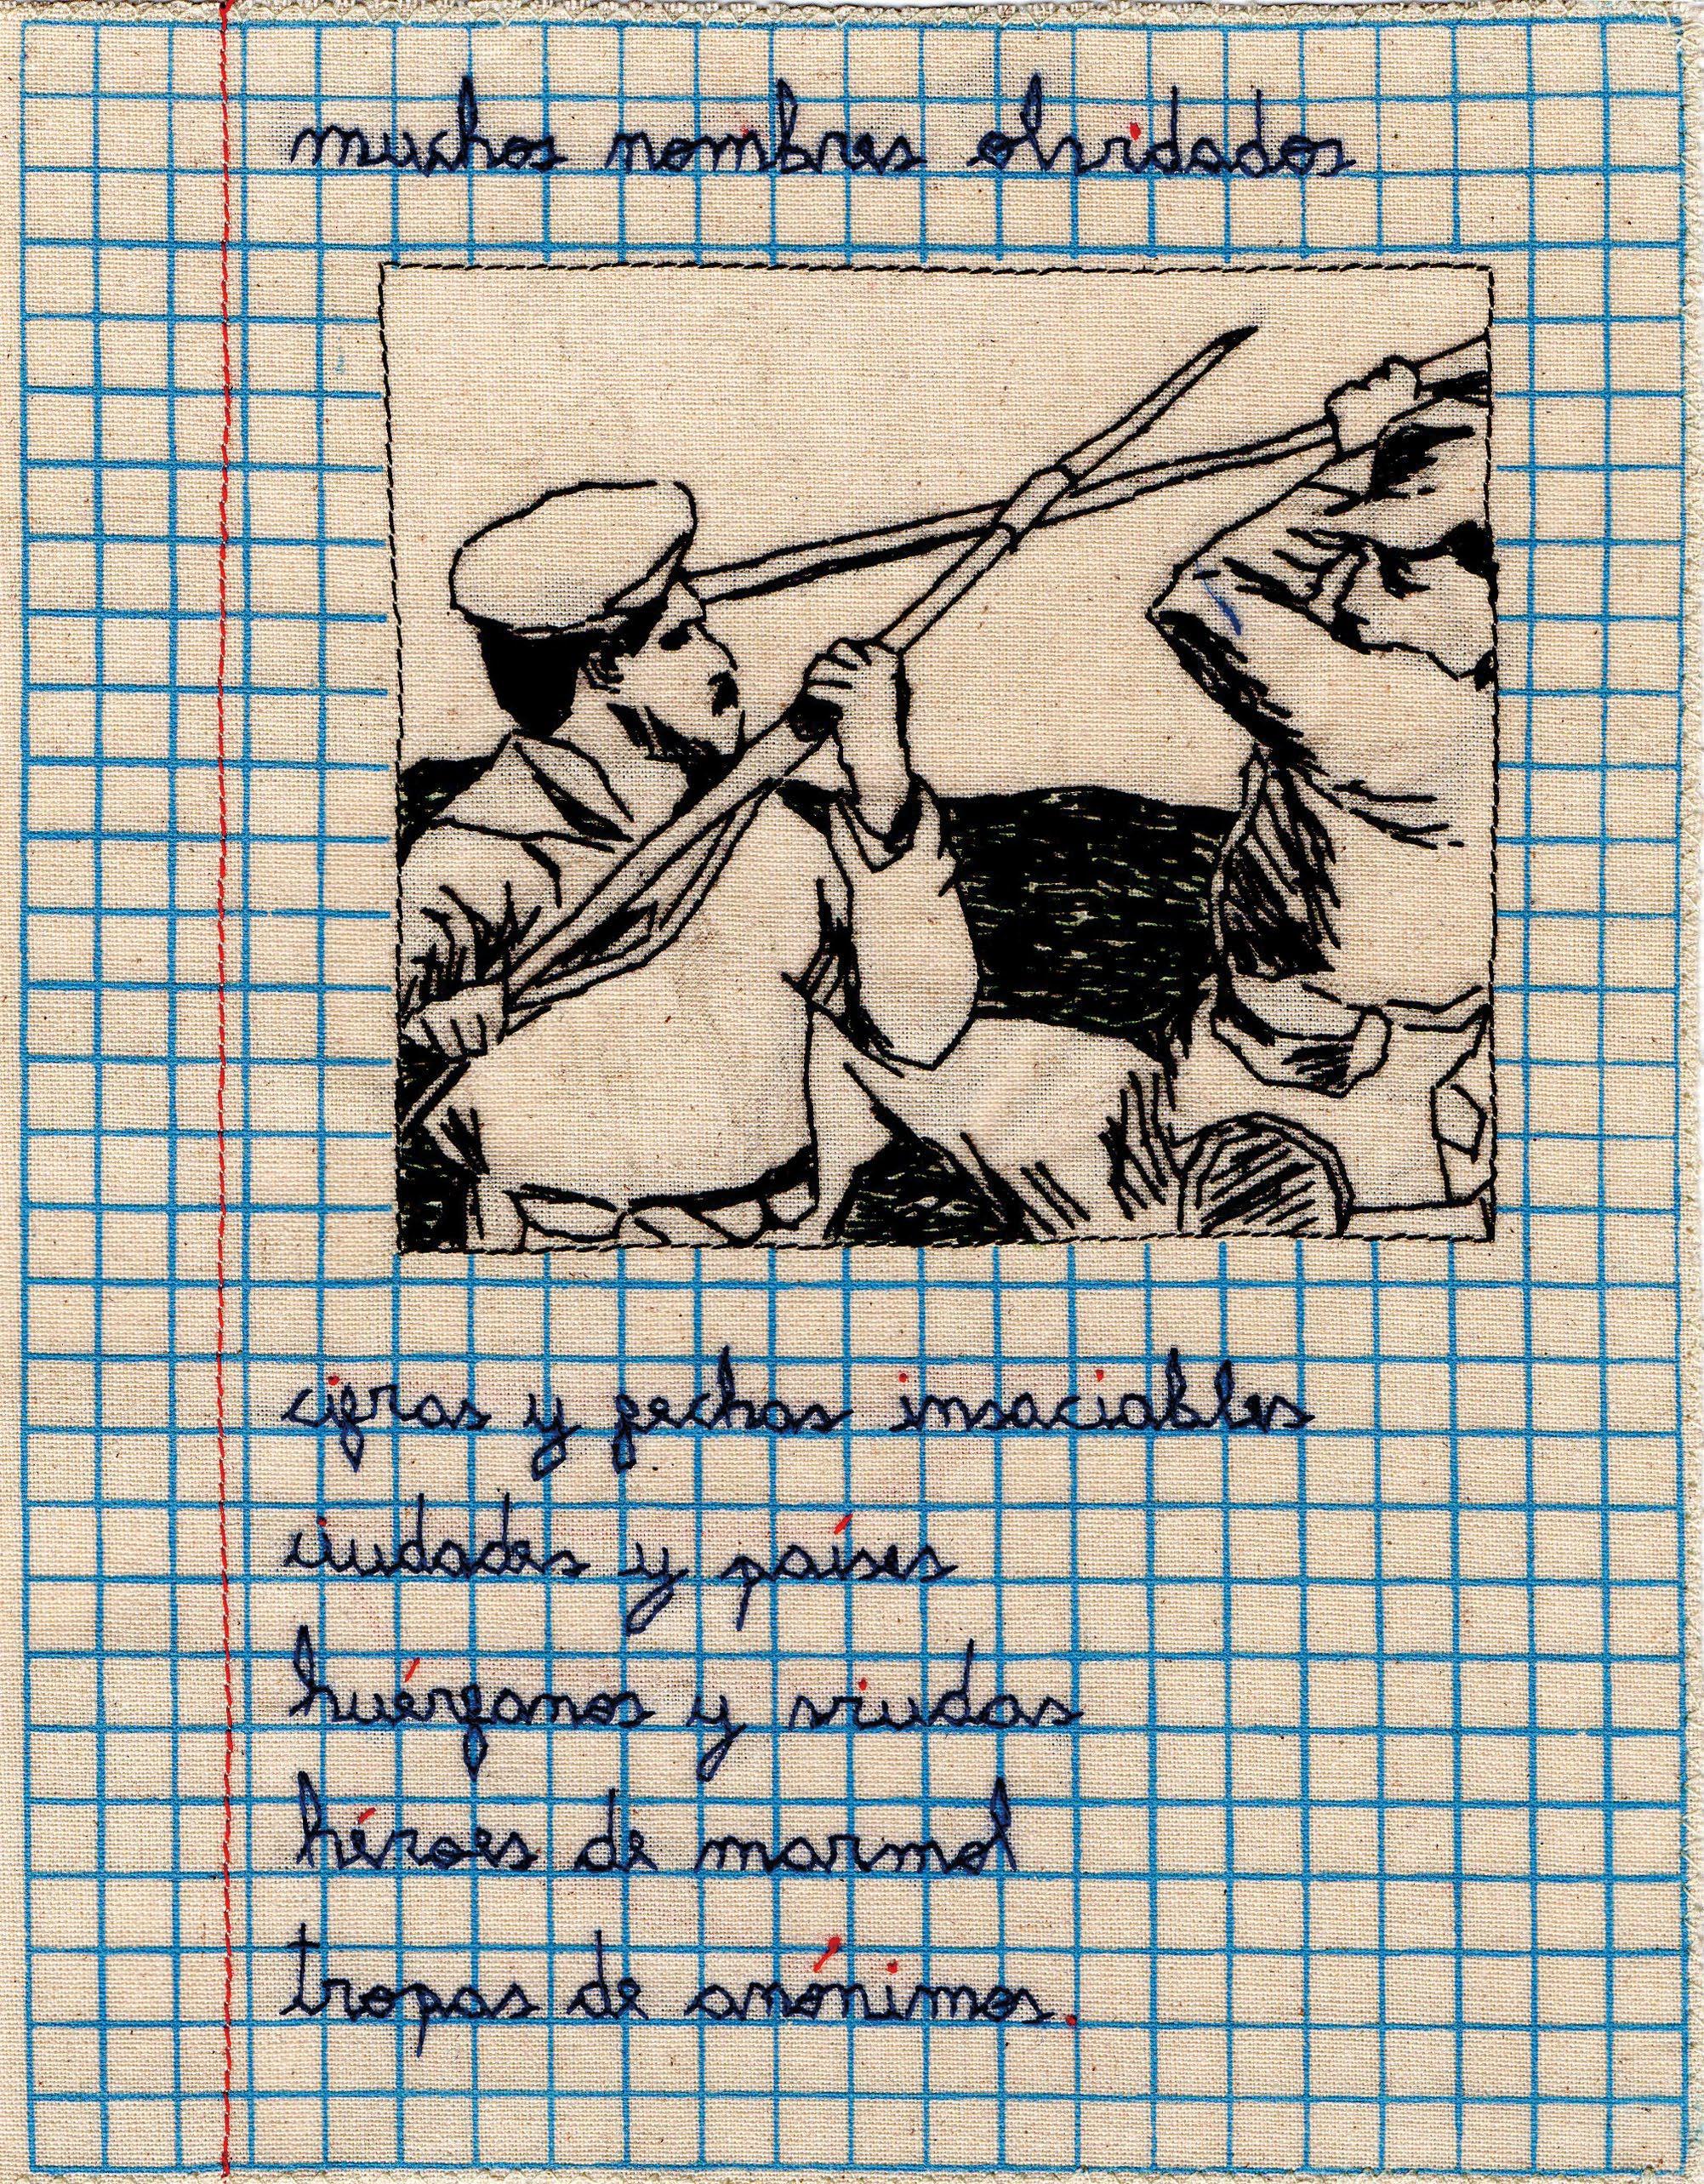 muchos nombres olvidados
cifras y fechas insaciables
ciudades y países
huérfanos y viudas
héroes de marmol
tropas de anónimos.